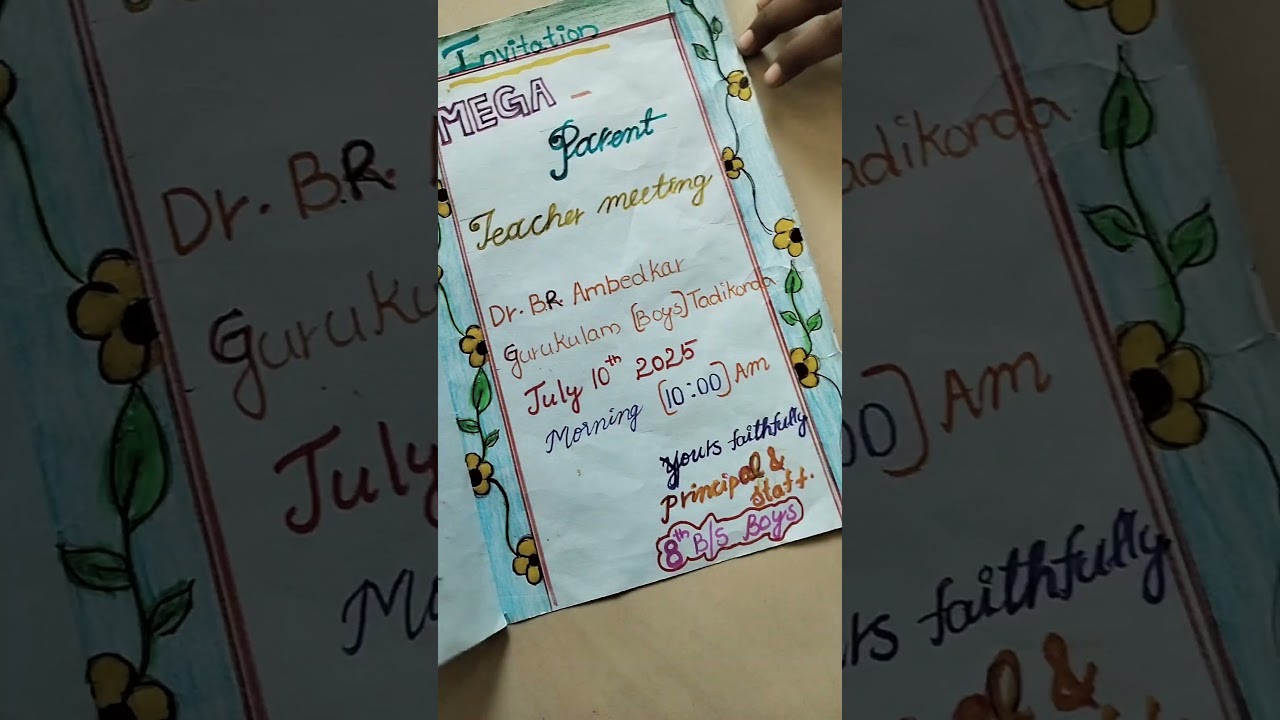 Invitation
MEGA -
Parent
Teacher meeting
Dr. B.R. Ambedkar
Gurukulam [Boys] Tadikonda
July 10th 2025
Morning [10:00] Am
Yours faithfully
principal &
staff.
8th B/S Boys